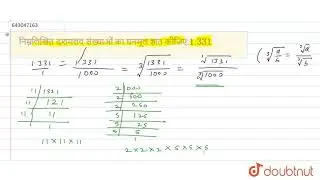 643047163
निम्नलिखित दशमलव संख्याओं का घनमूल ज्ञात कीजिए 1.331
1.331 / 1 = 1331 / 1000 = ∛(1331 / 1000) = ∛1331 / ∛1000 (∛(a/b) = ∛a / ∛b)
11 | 1331
11 | 121
11 | 11
1
11 × 11 × 11
2 | 1000
2 | 500
2 | 250
5 | 125
5 | 25
5 | 5
1
2 × 2 × 2 × 5 × 5 × 5
doubtnut